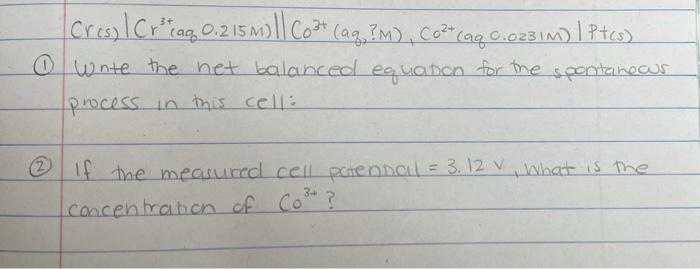 Cr(s) | Cr³⁺(aq 0.215M) || Co³⁺ (aq, ?M), Co²⁺ (aq 0.0231M) | Pt(s)
① Write the net balanced equation for the spontaneous
process in this cell:
② If the measured cell potential = 3.12 V, what is the
concentration of Co³⁺?